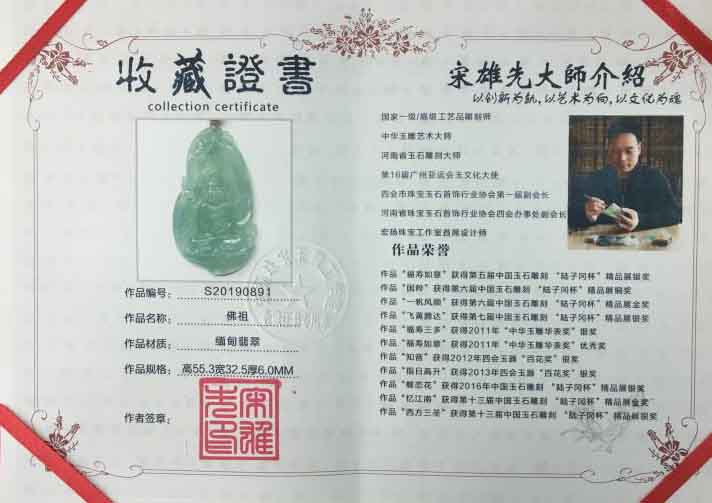 收藏證書
collection certificate
作品编号: S20190891
作品名称: 佛祖
作品材质: 缅甸翡翠
作品规格: 高55.3宽32.5厚6.0MM
作者签章:
宋雄先印
宋雄先大師介紹
以创新为轨,以艺术为向,以文化为魂
国家一级/高级工艺品雕刻师
中华玉雕艺术大师
河南省玉石雕刻大师
第16届广州亚运会玉文化大使
四会市珠宝玉石首饰行业协会第一届副会长
河南省珠宝玉石首饰行业协会四会办事处副会长
宏扬珠宝工作室首席设计师
作品荣誉
作品“福寿如意”获得第五届中国玉石雕刻 “陆子冈杯”精品展银奖
作品“国粹”获得第六届中国玉石雕刻 “陆子冈杯”精品展铜奖
作品“一帆风顺”获得第六届中国玉石雕刻 “陆子冈杯”精品展金奖
作品“飞黄腾达”获得第七届中国玉石雕刻 “陆子冈杯”精品展银奖
作品“福寿三多”获得2011年“中华玉雕华表奖”银奖
作品“福寿如意”获得2011年“中华玉雕华表奖”优秀奖
作品“知音”获得2012年四会玉器 “百花奖”银奖
作品“指日高升”获得2013年四会玉器 “百花奖”银奖
作品“蝶恋花”获得2016年中国玉石雕刻 “陆子冈杯”精品展银奖
作品“忆江南”获得第十三届中国玉石雕刻 “陆子冈杯”精品展金奖
作品“西方三圣”获得第十三届中国玉石雕刻 “陆子冈杯”精品展银奖